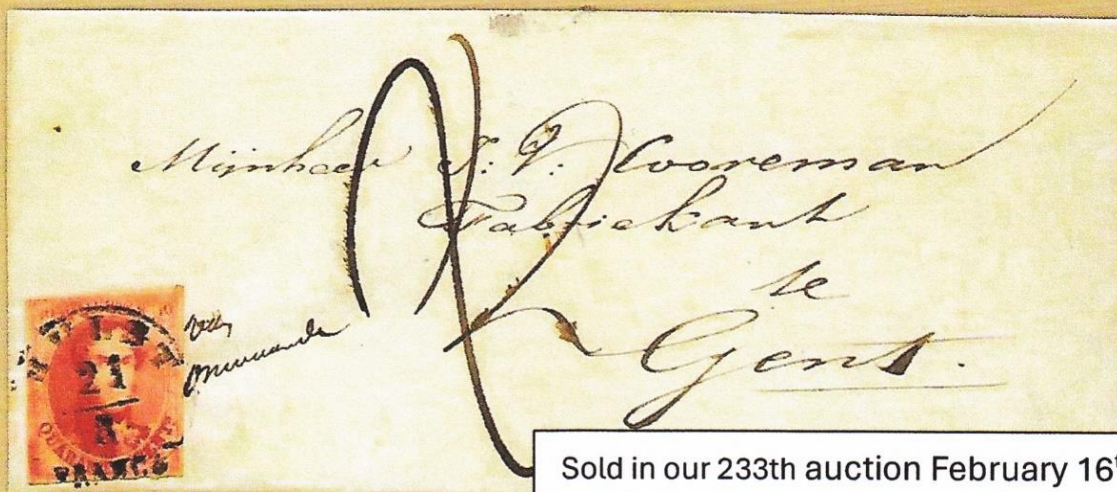 Mijnheer J. V. Cooreman
Fabriekant
te
Gent.
HULST
21
8
FRANCO
Sold in our 233th auction February 16t